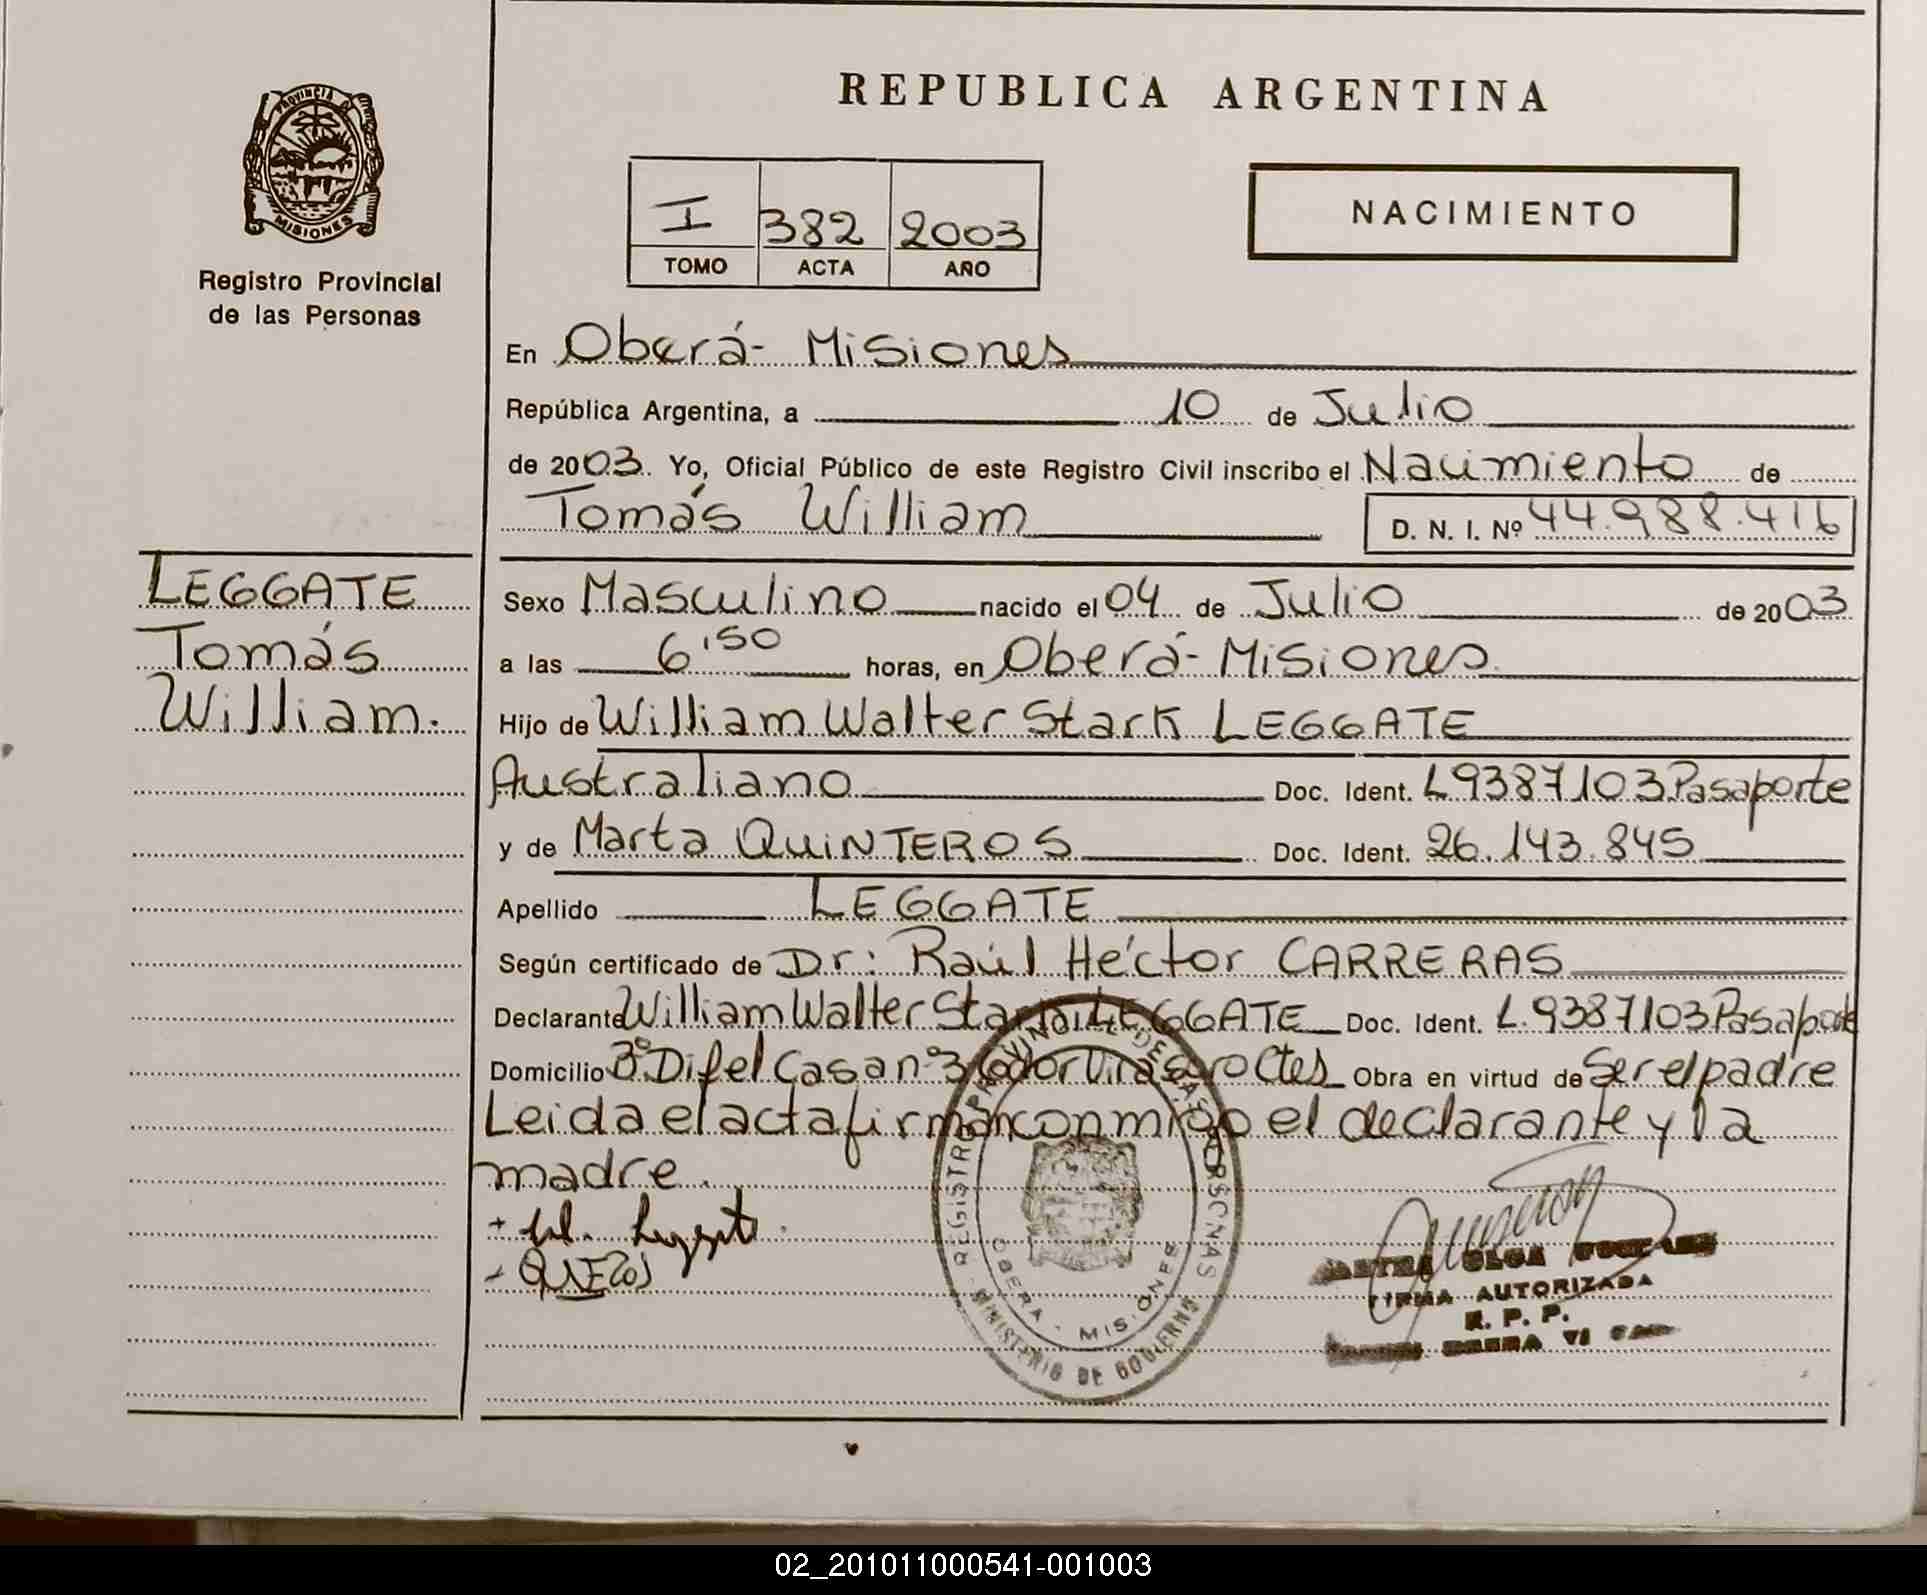 REPUBLICA ARGENTINA
PROVINCIA D
MISIONES
Registro Provincial
de las Personas
I 382 2003
TOMO ACTA AÑO
NACIMIENTO
En Oberá- Misiones
República Argentina, a 10 de Julio
de 2003. Yo, Oficial Público de este Registro Civil inscribo el Nacimiento de
Tomás William D. N. I. Nº 44.988.416
LEGGATE
Tomás
William.
Sexo Masculino nacido el 04 de Julio de 2003
a las 6'50 horas, en Oberá- Misiones.
Hijo de William Walter Stark LEGGATE
Australiano Doc. Ident. L9387103 Pasaporte
y de Marta QUINTEROS Doc. Ident. 26.143.845
Apellido LEGGATE
Según certificado de Dr: Raúl Héctor CARRERAS
Declarante William Walter Stark LEGGATE Doc. Ident. L.9387103 Pasaporte
Domicilio 3º Difel Casa nº 3 Gdor Virasoro Ctes Obra en virtud de Ser el padre
Leida el acta firman conmigo el declarante y la
madre.
REGISTRO PROVINCIAL DE LAS PERSONAS
OBERA - MISIONES
MINISTERIO DE GOBIERNO
OLGA
FIRMA AUTORIZADA
R. P. P.
02_201011000541-001003